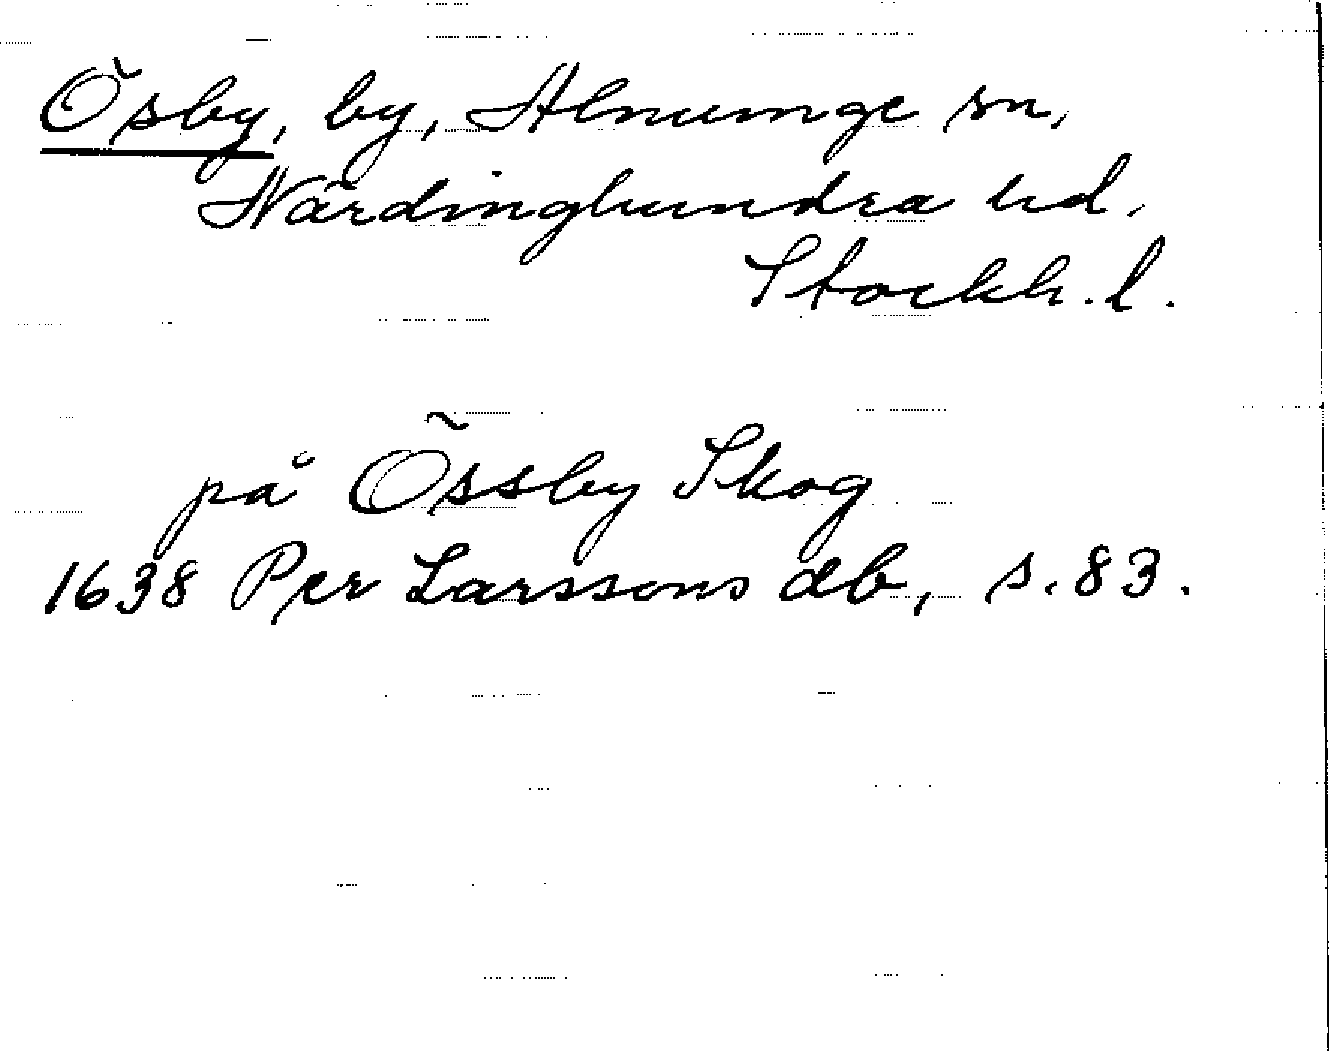 Ösby, by, Almunge sn,
Närdinghundra hd,
Stockh. l.
på Össby Skog
1638 Per Larssons db, s. 83.